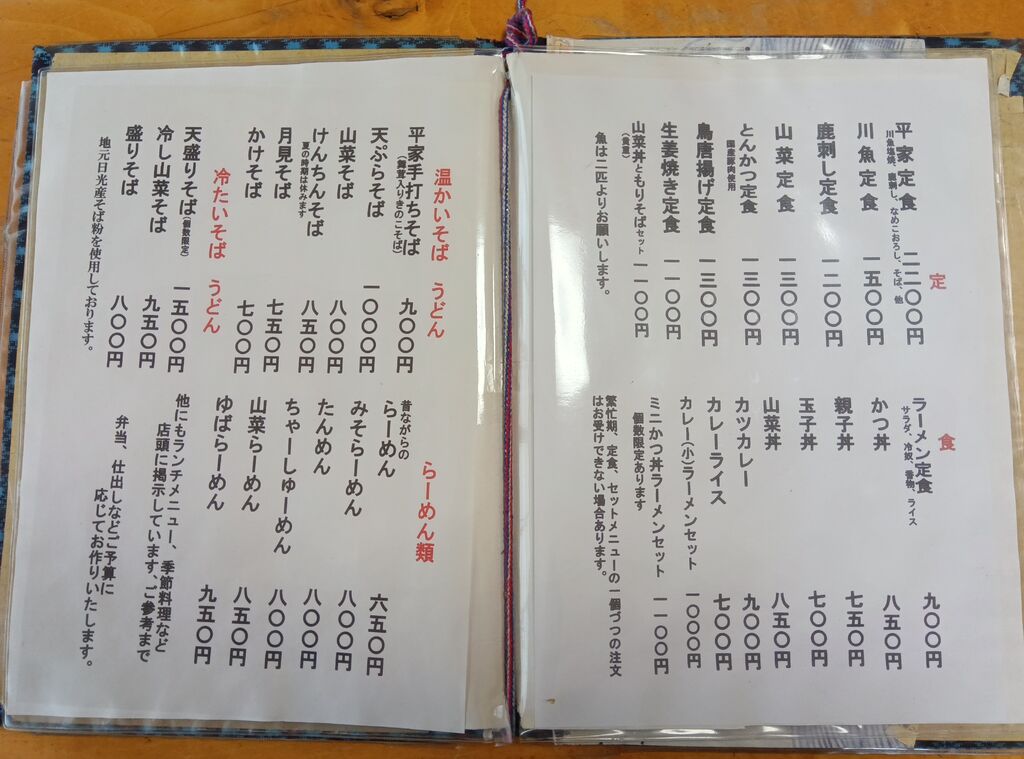 定食
平家定食 二二〇〇円
川魚塩焼、鹿刺し、なめこおろし、そば、他
川魚定食 一五〇〇円
鹿刺し定食 一二〇〇円
山菜定食 一三〇〇円
とんかつ定食 一三〇〇円
国産豚肉使用
鳥唐揚げ定食 一三〇〇円
生姜焼き定食 一一〇〇円
山菜丼ともりそばセット 一一〇〇円
魚は二匹よりお願いします。
ラーメン定食 九〇〇円
サラダ、冷奴、香物、ライス
かつ丼 八五〇円
親子丼 七五〇円
玉子丼 七〇〇円
山菜丼 八五〇円
カツカレー 九〇〇円
カレーライス 七〇〇円
カレー(小)ラーメンセット 一〇〇〇円
ミニかつ丼ラーメンセット 一一〇〇円
個数限定あります
繁忙期、定食、セットメニューの一個づつの注文
はお受けできない場合あります。
温かいそば うどん
平家手打ちそば 九〇〇円
(舞茸入りきのこそば)
天ぷらそば 一〇〇〇円
山菜そば 八〇〇円
けんちんそば 八五〇円
夏の時期は休みます
月見そば 七五〇円
かけそば 七〇〇円
冷たいそば うどん
天盛りそば(個数限定) 一五〇〇円
冷し山菜そば 九五〇円
盛りそば 八〇〇円
地元日光産そば粉を使用しております。
らーめん類
昔ながらの
らーめん 六五〇円
みそらーめん 八〇〇円
たんめん 八〇〇円
ちゃーしゅーめん 八〇〇円
山菜らーめん 八五〇円
ゆばらーめん 九五〇円
他にもランチメニュー、季節料理など
店頭に掲示しています、ご参考まで
弁当、仕出しなどご予算に
応じてお作りいたします。